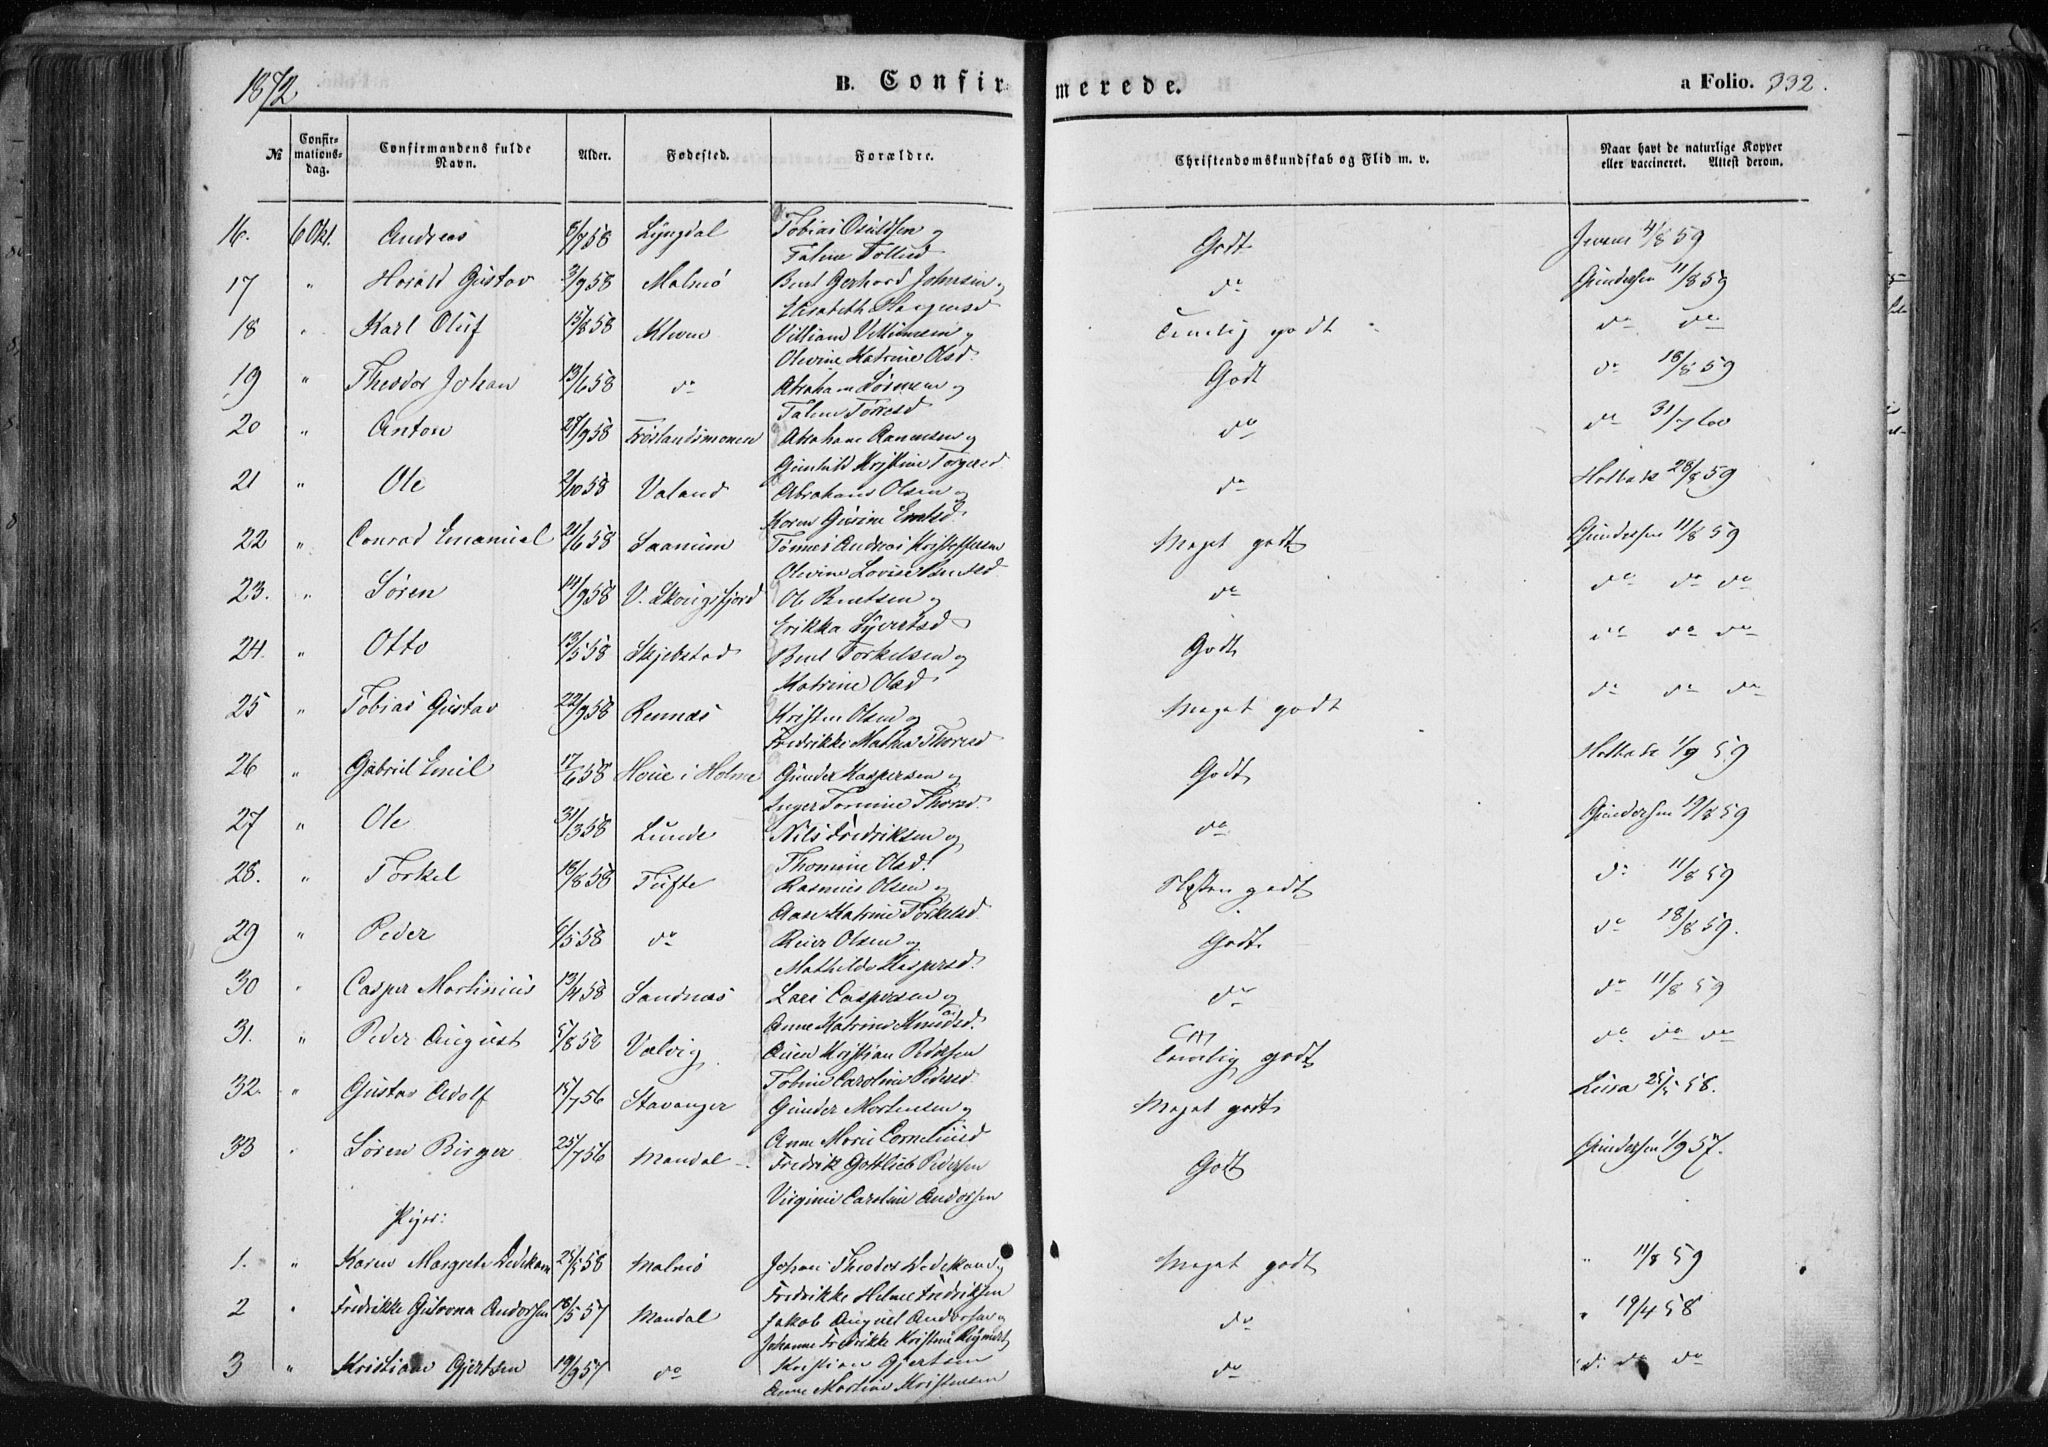 1872
B. Confirmerede.
a Folio. 332.
№
Confirmationsdag.
Confirmandens fulde Navn.
Alder.
Fødested.
Forældre.
Christendomskundskab og Flid m. v.
Naar havt de naturlige Kopper eller vaccineret. Attest derom.
16. 6 Okt. Andreas 3/7 58 Lyngdal Tobias Osuldsen og Godt 4/8 59
17 " Harald Gustav 3/9 58 Malmö Bent Gerhard Johnsen og do Gundersen 11/8 59
Elisabeth
18 " Karl Oluf 15/8 58 Kleven Villiam Villumsen og Temelig godt do do
Olivine Katrine Olsd.
19 " Theodor Johan 13/6 58 do Abraham Sørensen og Godt do 18/8 59
Talene Torresd
20 " Anton 27/9 58 Frøslandsmonen Abraham Aanensen og do do 31/7
Gunhild Kristine Torgersd.
21 " Ole 2/10 58 Valand Abraham Olsen og do Holbæk 28/8 59
Karen Gurine
22 " Conrad Emanuel 21/6 58 Saanum Tønnes Andreas Kristoffersen Meget godt Gundersen 11/8 59
Olivine Lovise Bentsd.
23. " Søren 14/9 58 V. Skougsfjord Ole Bentsen og do do do do
Erikka Syvertsd
24. " Otto 13/5 58 Skjebstad Bent Torkelsen og Godt do do do
Katrine Olsd
25 " Tobias Gustav 22/9 58 Rennæs Kristen Olsen og Meget godt do do do
Fredrikke Mathea Thoresd
26 " Gabriel Emil 17/6 58 Houe i Holme Gunder Kaspersen og Godt Holbæk 1/9 59
Inger Tomine Thorsd.
27 " Ole 31/3 58 Lunde Nils Fredriksen og do Gundersen 19/8 59
Thomine Olsd.
28. " Torkel 18/8 58 Tufte Rasmus Olsen og Næsten godt do 11/8 59
Aase Katrine Torkelsd
29 " Peder 6/5 58 do Reier Olsen og Godt do 18/8 59.
Mathilde Kaspersd.
30 " Casper Martinius 13/4 58 Sandnæs Lars Caspersen og do do 11/8 59
Anne Katrine Knudsd.
31. " Peder August 5/8 58 Valvig Ouen Kristian Pedersen Temelig godt do do do
Tobine Caroline Pedersd.
32. " Gustav Adolf 15/7 56 Stavanger Gunder Mortensen og Meget godt 25/5 58.
Anne Marie Corneliusd
33 " Søren Birger 25/7 56 Mandal Fredrik Gottlieb Pedersen Godt Gundersen 1/9 57.
Virginie Caroline Andorsen
Piger:
1. " Karen Margrete Dedekam 25/5 58 Malmö Johan Theodor Dedekam og Meget godt " 11/8 59
Fredrikke Helene Fredriksen
2 " Fredrikke Gurovna Andorsen 18/5 57 Mandal Jakob August Andorsen og do " 19/4 58
Johanne Fredrikke Kristine
3 " Kristiane Gjertsen 19/9 57 do Kristian Gjertsen do do do do
Anne Martine Kristensen